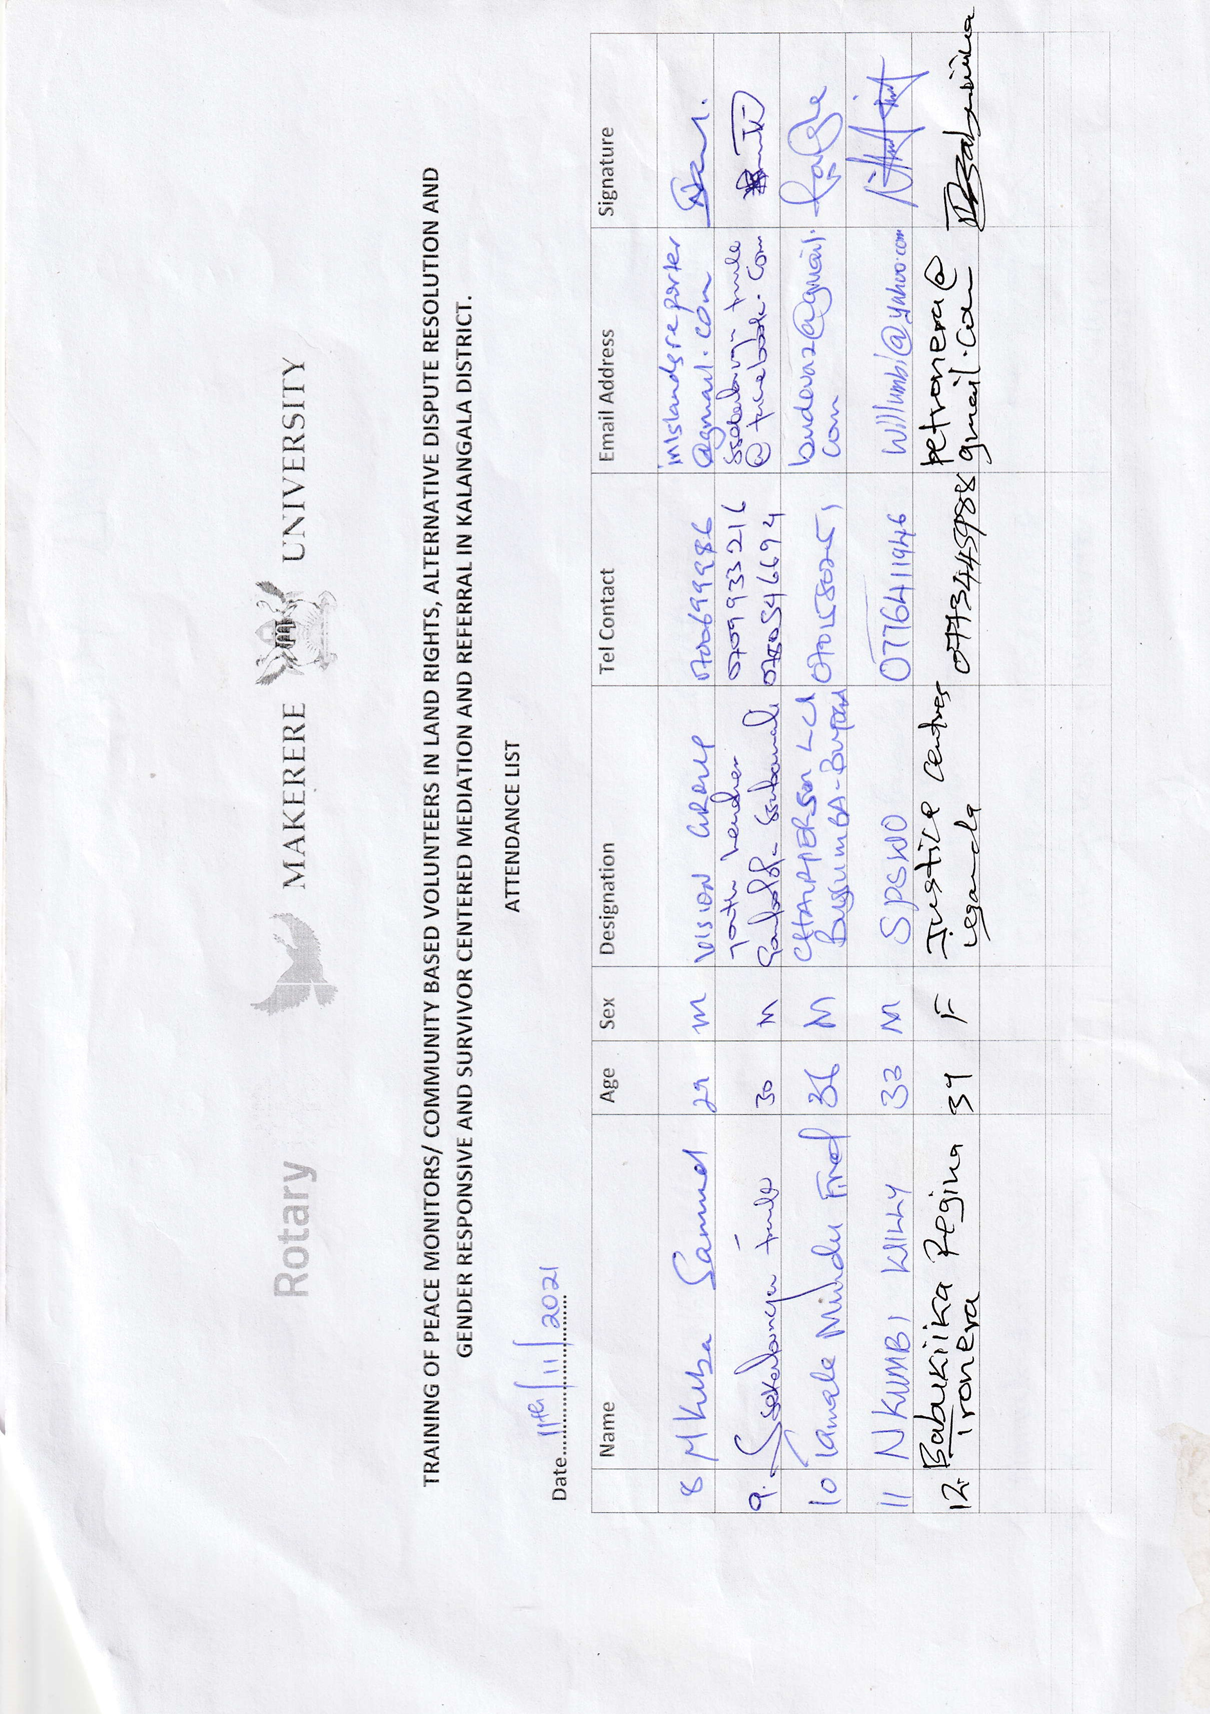 Rotary MAKERERE UNIVERSITY
TRAINING OF PEACE MONITORS/ COMMUNITY BASED VOLUNTEERS IN LAND RIGHTS, ALTERNATIVE DISPUTE RESOLUTION AND
GENDER RESPONSIVE AND SURVIVOR CENTERED MEDIATION AND REFERRAL IN KALANGALA DISTRICT.
ATTENDANCE LIST
Date 11th/11/2021
Name Age Sex Designation Tel Contact Email Address Signature
8 Mkuba Samuel 29 M VISION GROUP 0700699986 inislandsreporter
@gmail.com
9. 30 M Youth leader 0709933216
0750546694 @facebook.com
10 Kamale Mindu Fred 36 M CHAIRPERSON LC1
com
11 NKUMBI WILLY 33 M SPSWO 0776411946 willumbi@yahoo.com
12. Babukiika Regina 39 F Justice Centres 0773445988 petronera@
ironera Uganda gmail.com